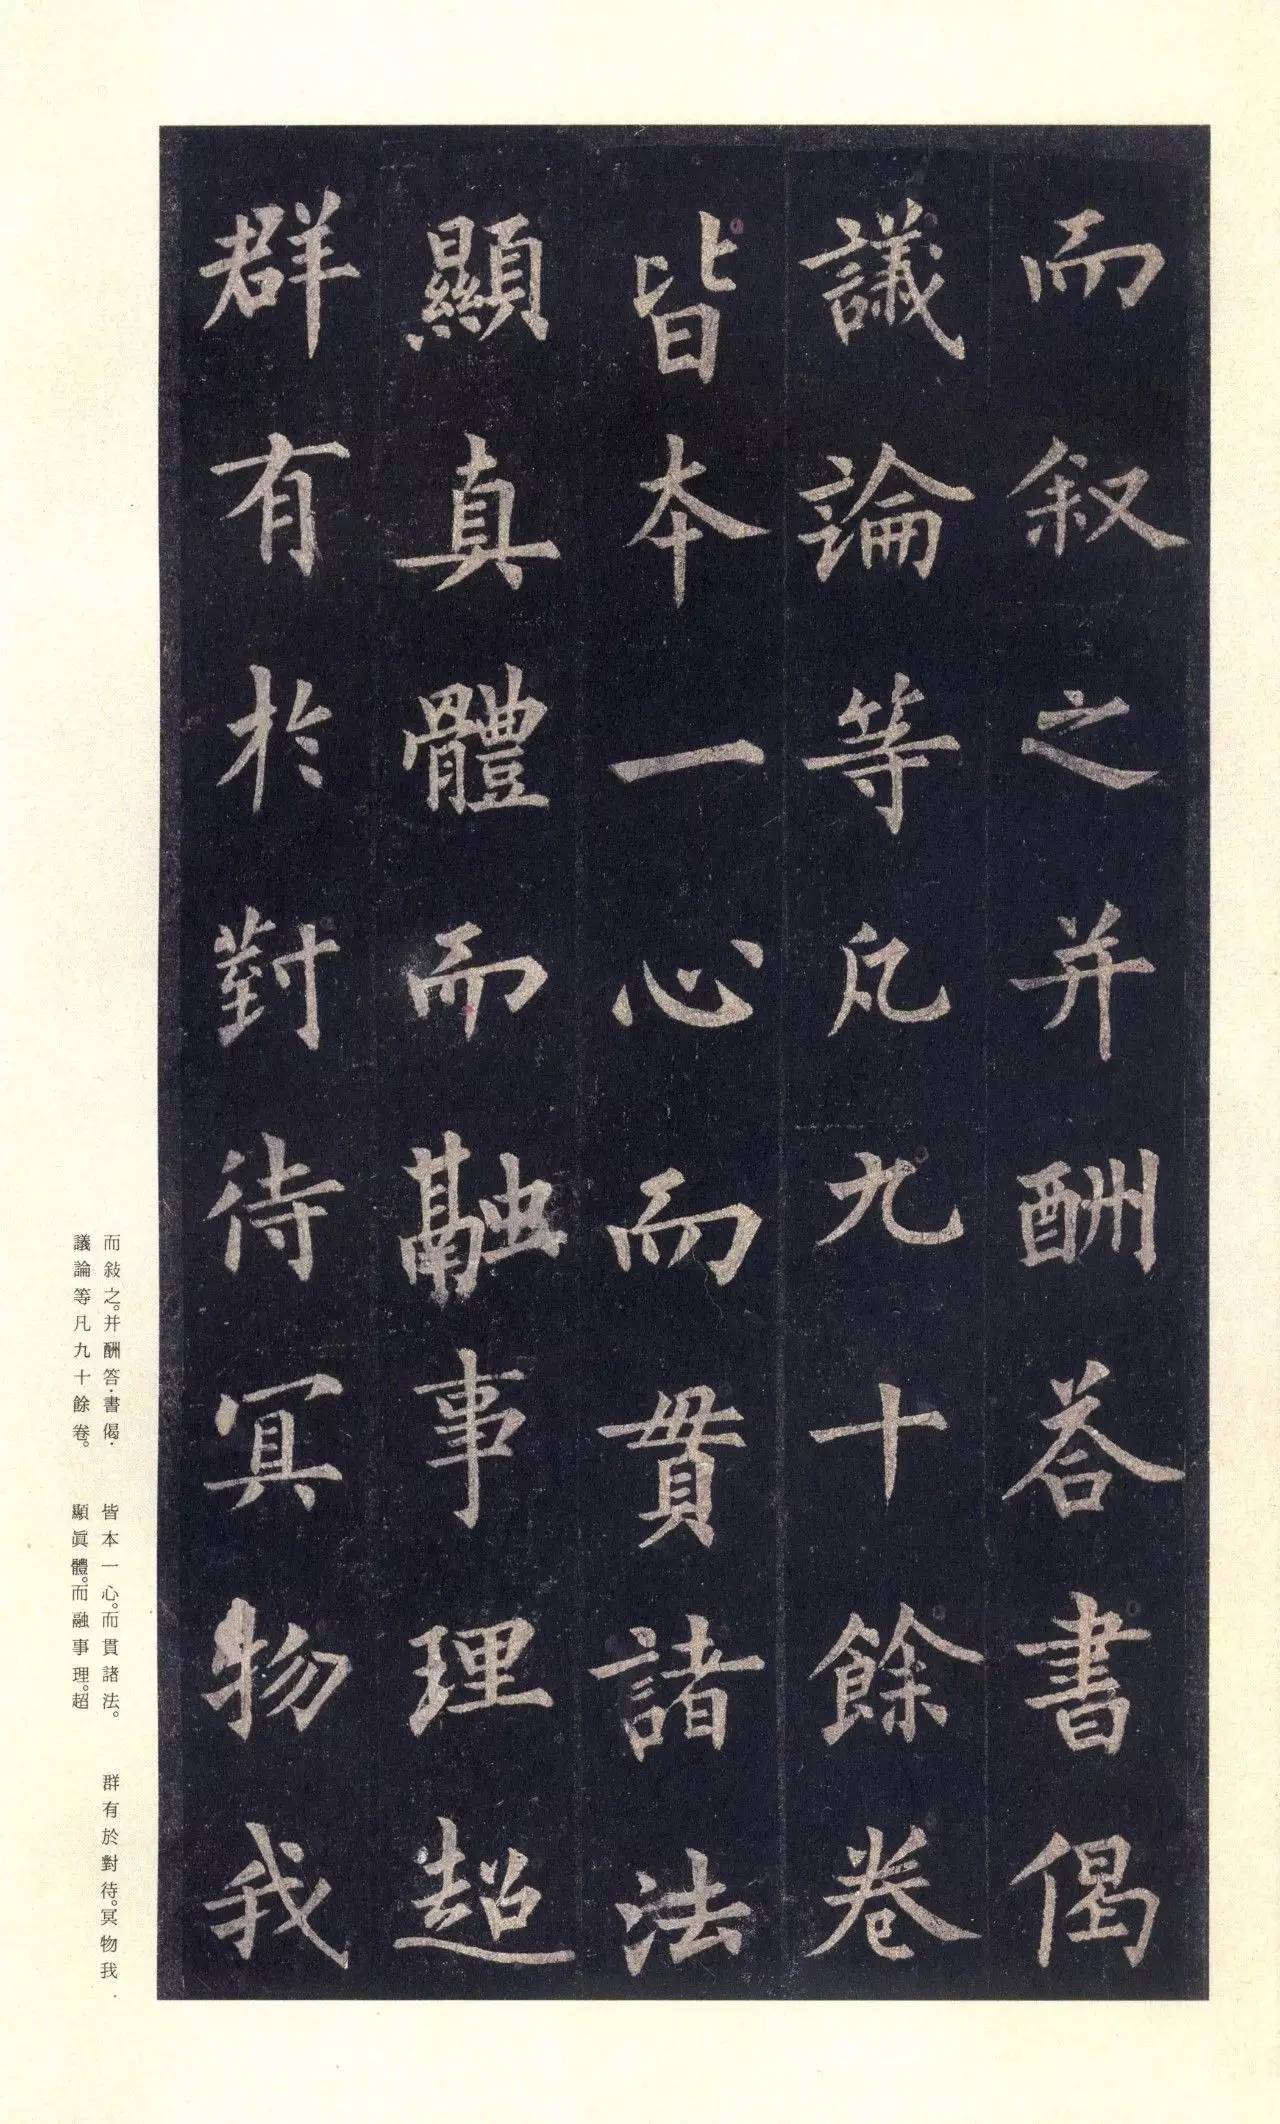 而叙之并酬荅書偈
議論等凡九十餘卷
皆本一心而貫諸法
顯真體而融事理超
群有於對待冥物我
而敍之。并酬答·書偈·
議論等凡九十餘卷。
皆本一心。而貫諸法。
顯眞體。而融事理。超
群有於對待。冥物我·